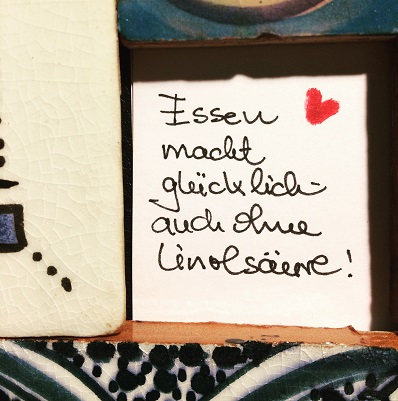 Essen
macht
glücklich-
auch ohne
Linolsäure!